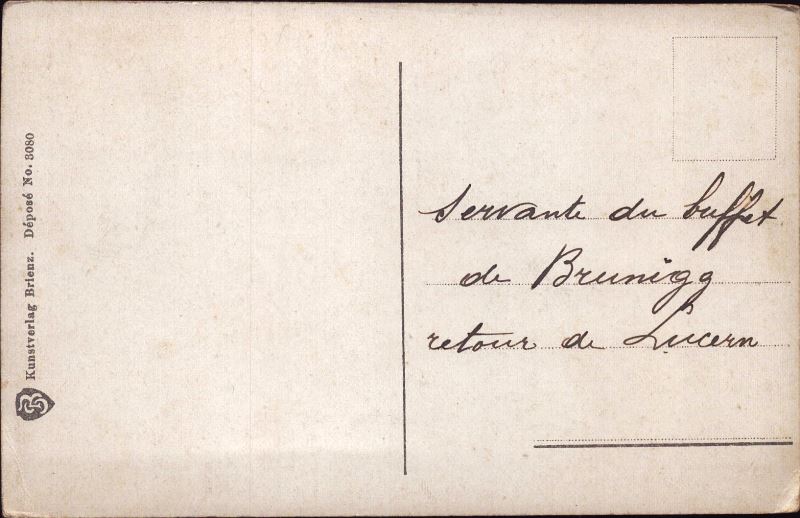 Kunstverlag Brienz. Déposé No. 3080
Servante du buffet
de Brunigg
retour de Lucern